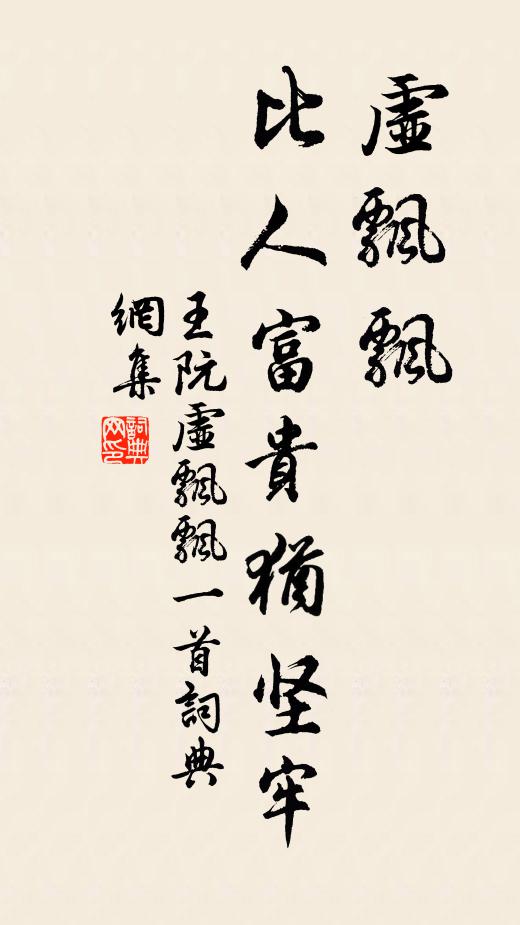 虛飄飄
比人富貴猶坚牢
王阮虛飄飄一首詞典
網集
詞典網印